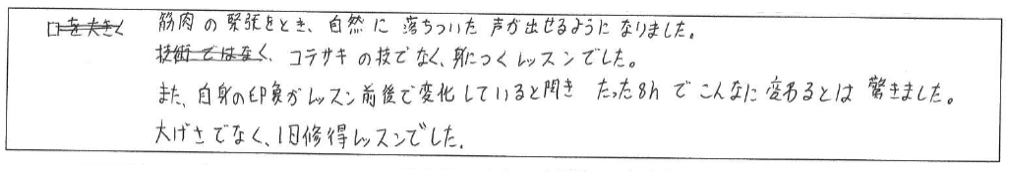 口を大きく 筋肉の緊張をとき、自然に落ちついた声が出せるようになりました。
技術ではなく、コテサキの技でなく、身につくレッスンでした。
また、自身の印象がレッスン前後で変化していると聞き たった8hでこんなに変わるとは驚きました。
大げさでなく、1日修得レッスンでした。